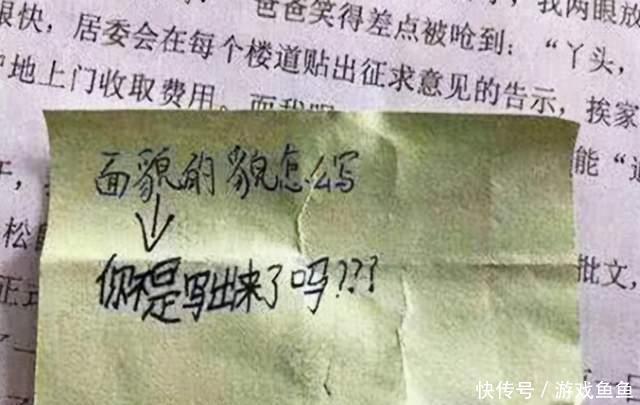 我两眼放
很快，居委会在每个楼道贴出征求意见的告示，挨家
爸爸笑得差点被呛到：“丫头，
地上门收取费用。
能“
面貌的貌怎么写
松
↓
批文，
你不是写出来了吗???
正式
快传号／游戏鱼鱼